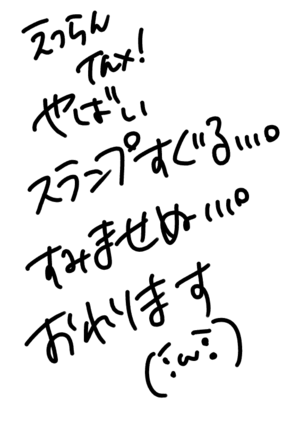 えつらん
Tax!
やばい
スランプすぐる…。
すみませぬ…。
おわります
(´:ω:`)